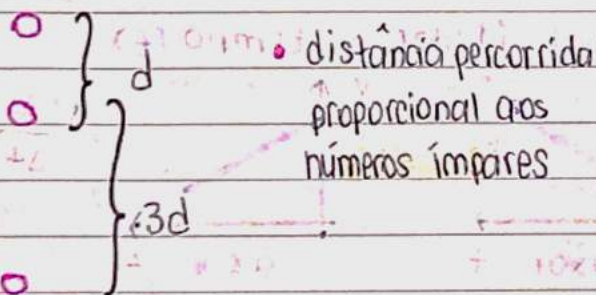 d
• distância percorrida
proporcional aos
números ímpares
3d